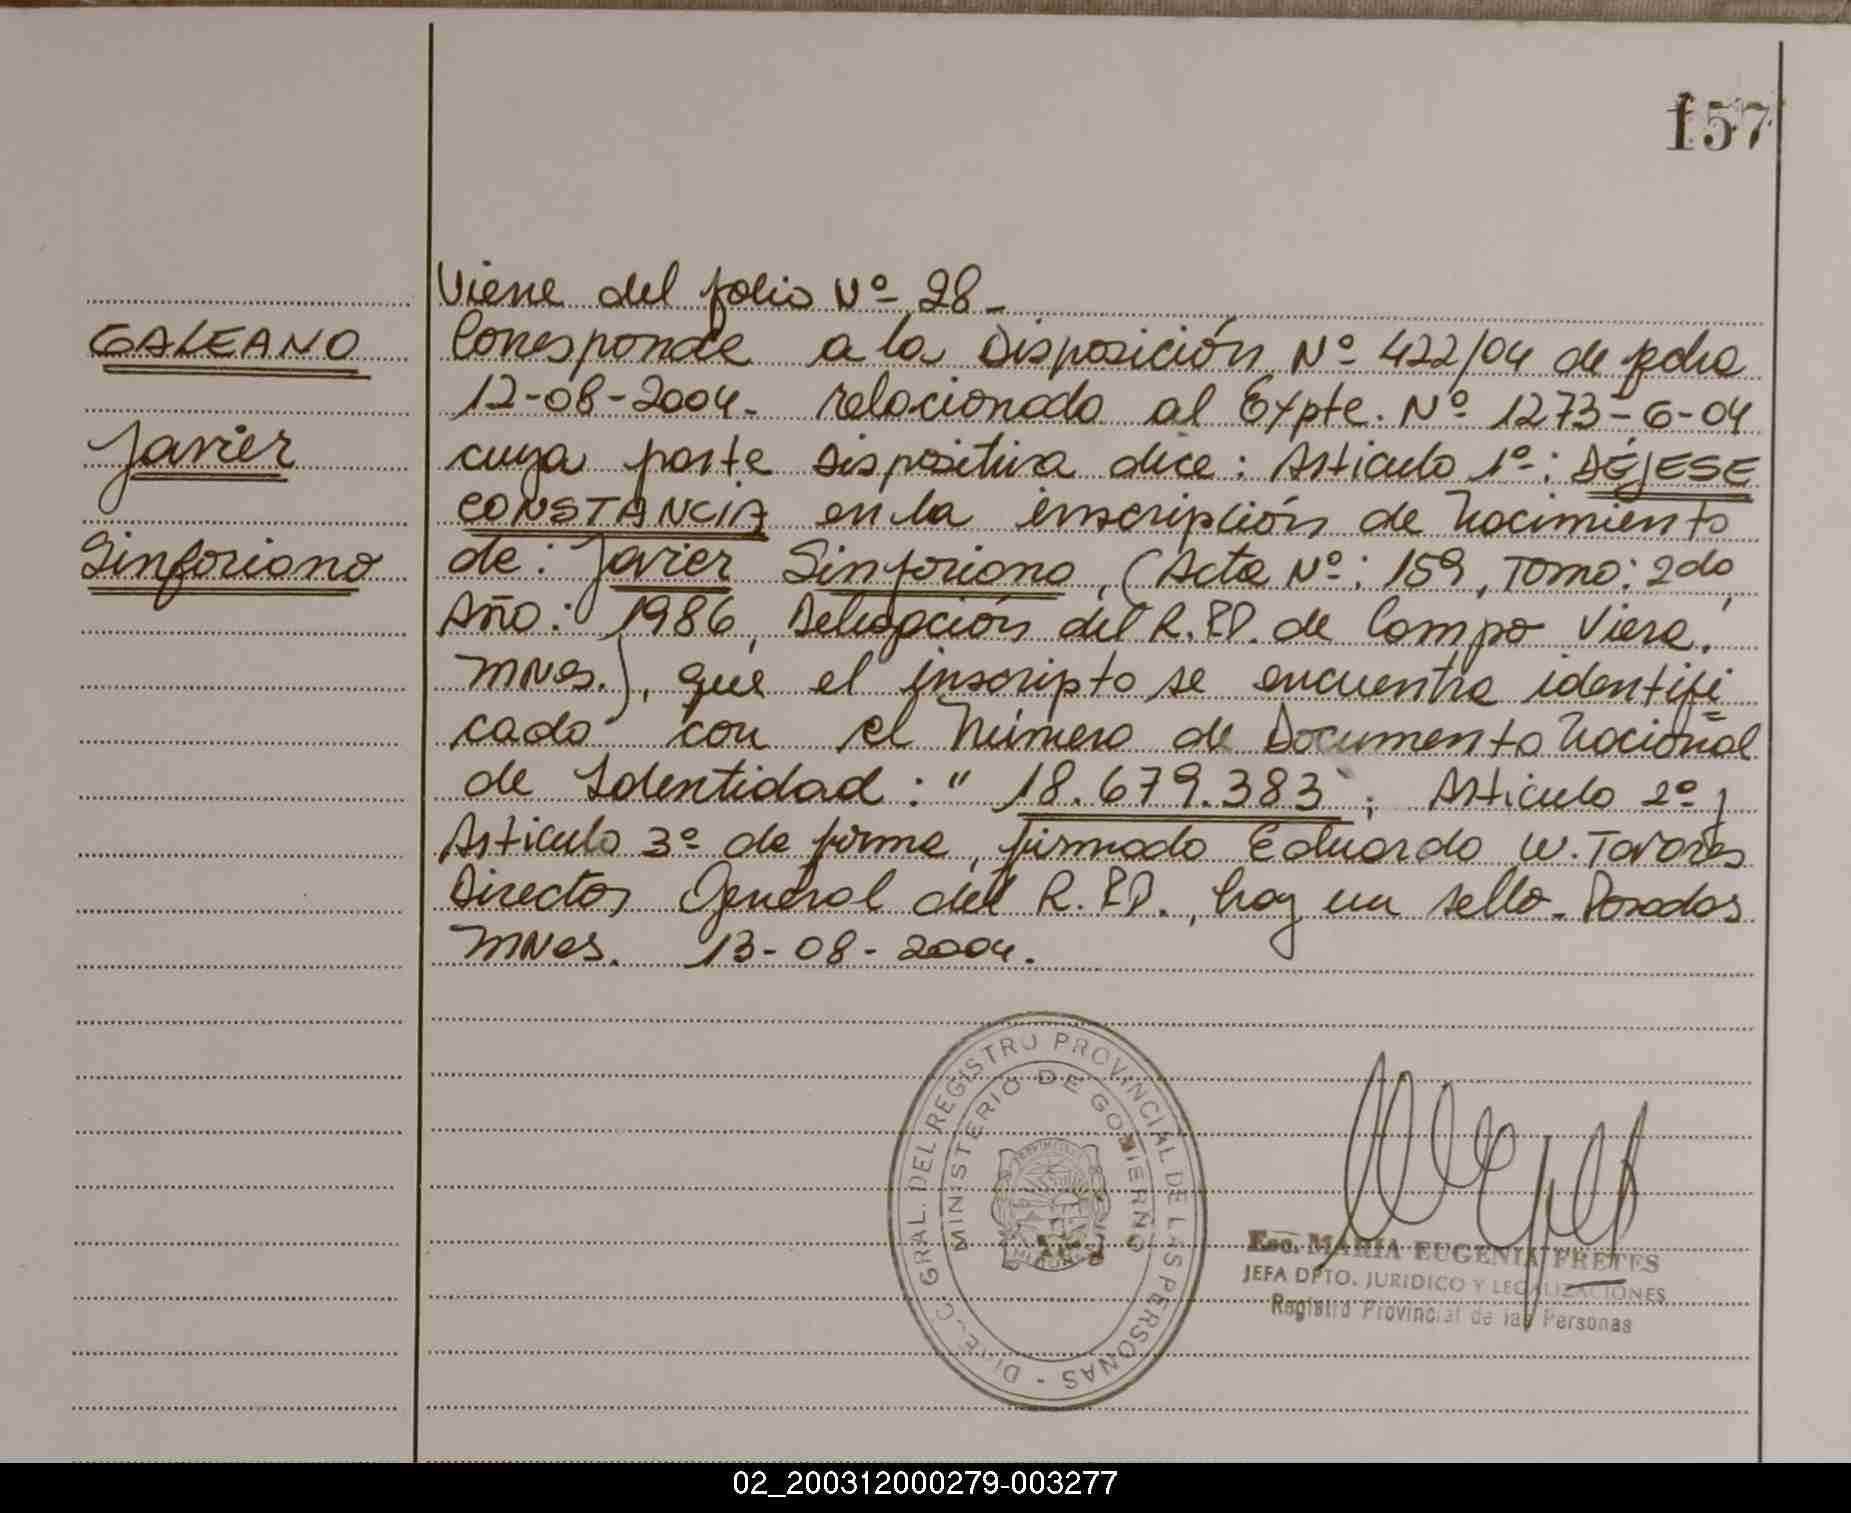 157
Viene del folio Nº 28_
GALEANO
Corresponde a la Disposición Nº 422/04 de fecha
12-08-2004. relacionado al Expte. Nº 1273-G-04
Javier
cuya parte dispositiva dice: Artículo 1º: DÉJESE
CONSTANCIA en la inscripción de Nacimiento
Sinforiano
de: Javier Sinforiano, (Acta Nº: 159, Tomo: 2do,
Año: 1986, Delegación del R.P.P. de Campo Viera,
MNES.), que el inscripto se encuentra identifi
cado con el Número de Documento Nacional
de Identidad: " 18.679.383; Artículo 2º y
Artículo 3º de forma, firmado Eduardo W. Tavares
Director General del R.P.P., hay un sello. Posadas
MNES. 13-08-2004.
DIREC. GRAL. DEL REGISTRO PROVINCIAL DE LAS PERSONAS -
MINISTERIO DE GOBIERNO
Esc. MARIA EUGENIA FRETES
JEFA DPTO. JURIDICO Y LEGALIZACIONES
Registro Provincial de las Personas
02_200312000279-003277